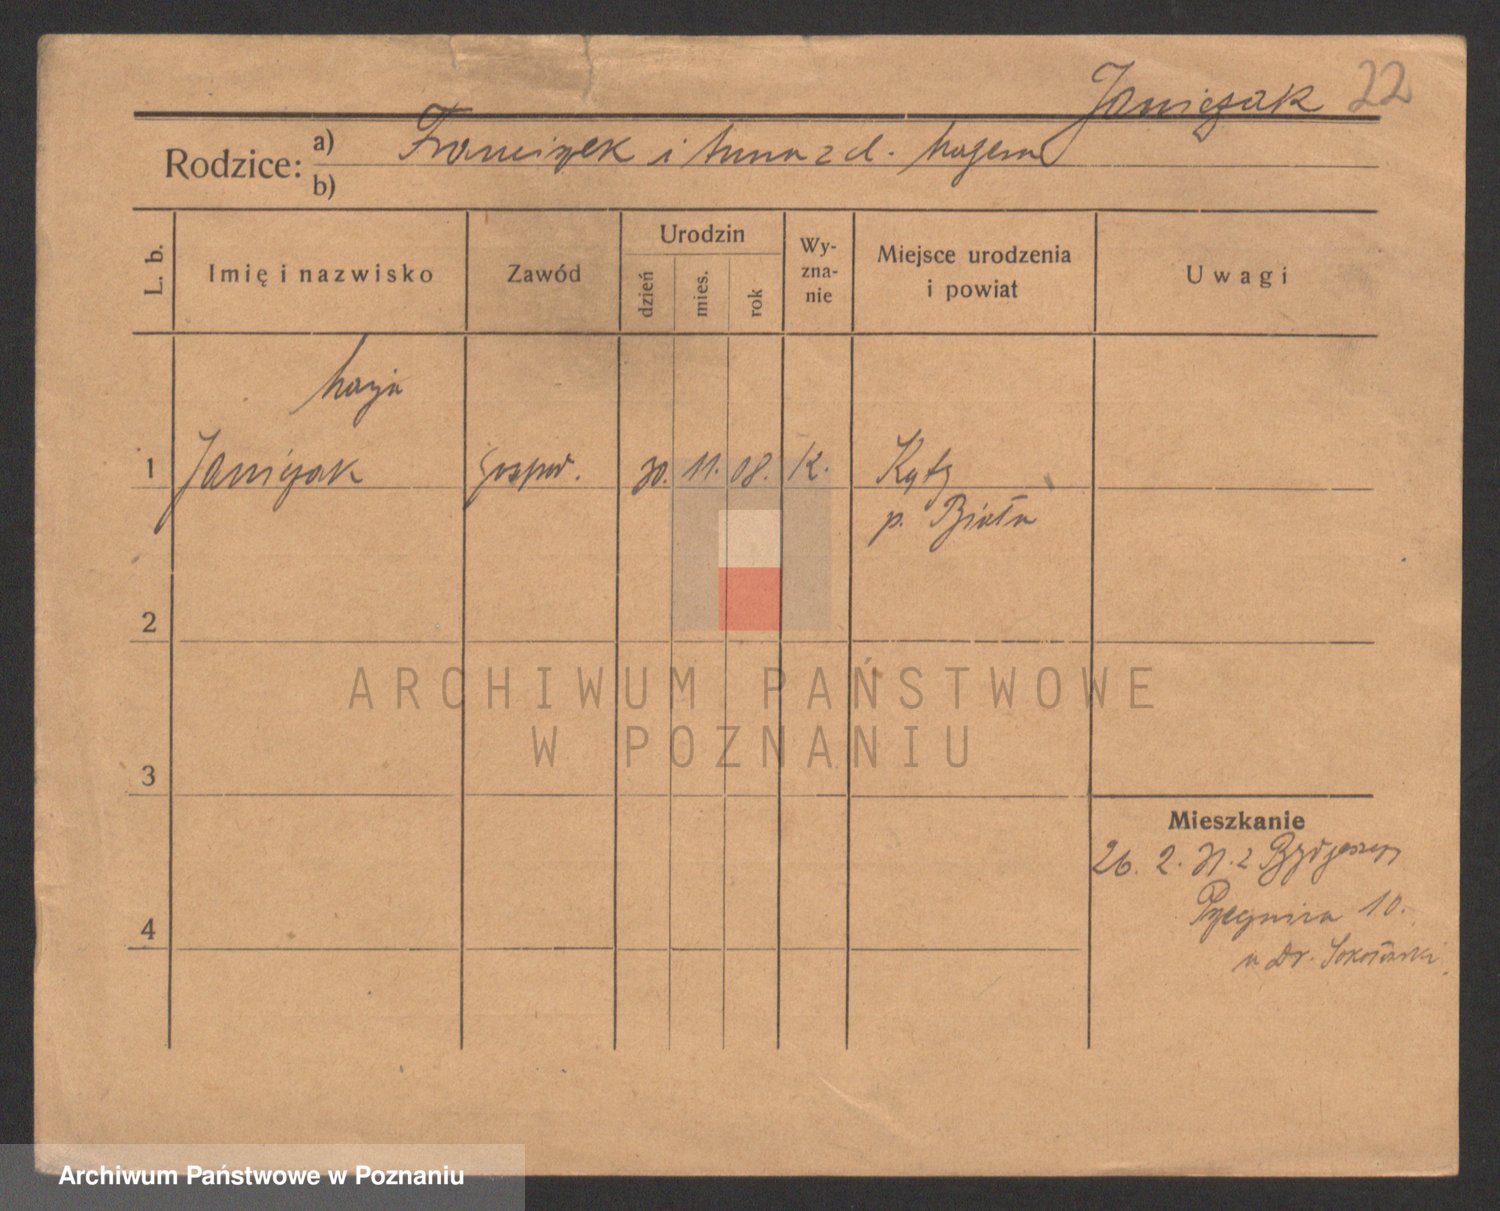 Janiczak 22
Rodzice: a) Franciszek i Anna z d.
b)
L. b.
Imię i nazwisko
Zawód
Urodzin
dzień
mies.
rok
Wy-
zna-
nie
Miejsce urodzenia
i powiat
Uwagi
Marja
1 Janiczak gospod. 30. 11. 08. K. Kąty
p. Biała
2
3
4
ARCHIWUM PAŃSTWOWE
W POZNANIU
Mieszkanie
26. 2. 31. z Bydgoszczy
10.
u Dr.
Archiwum Państwowe w Poznaniu